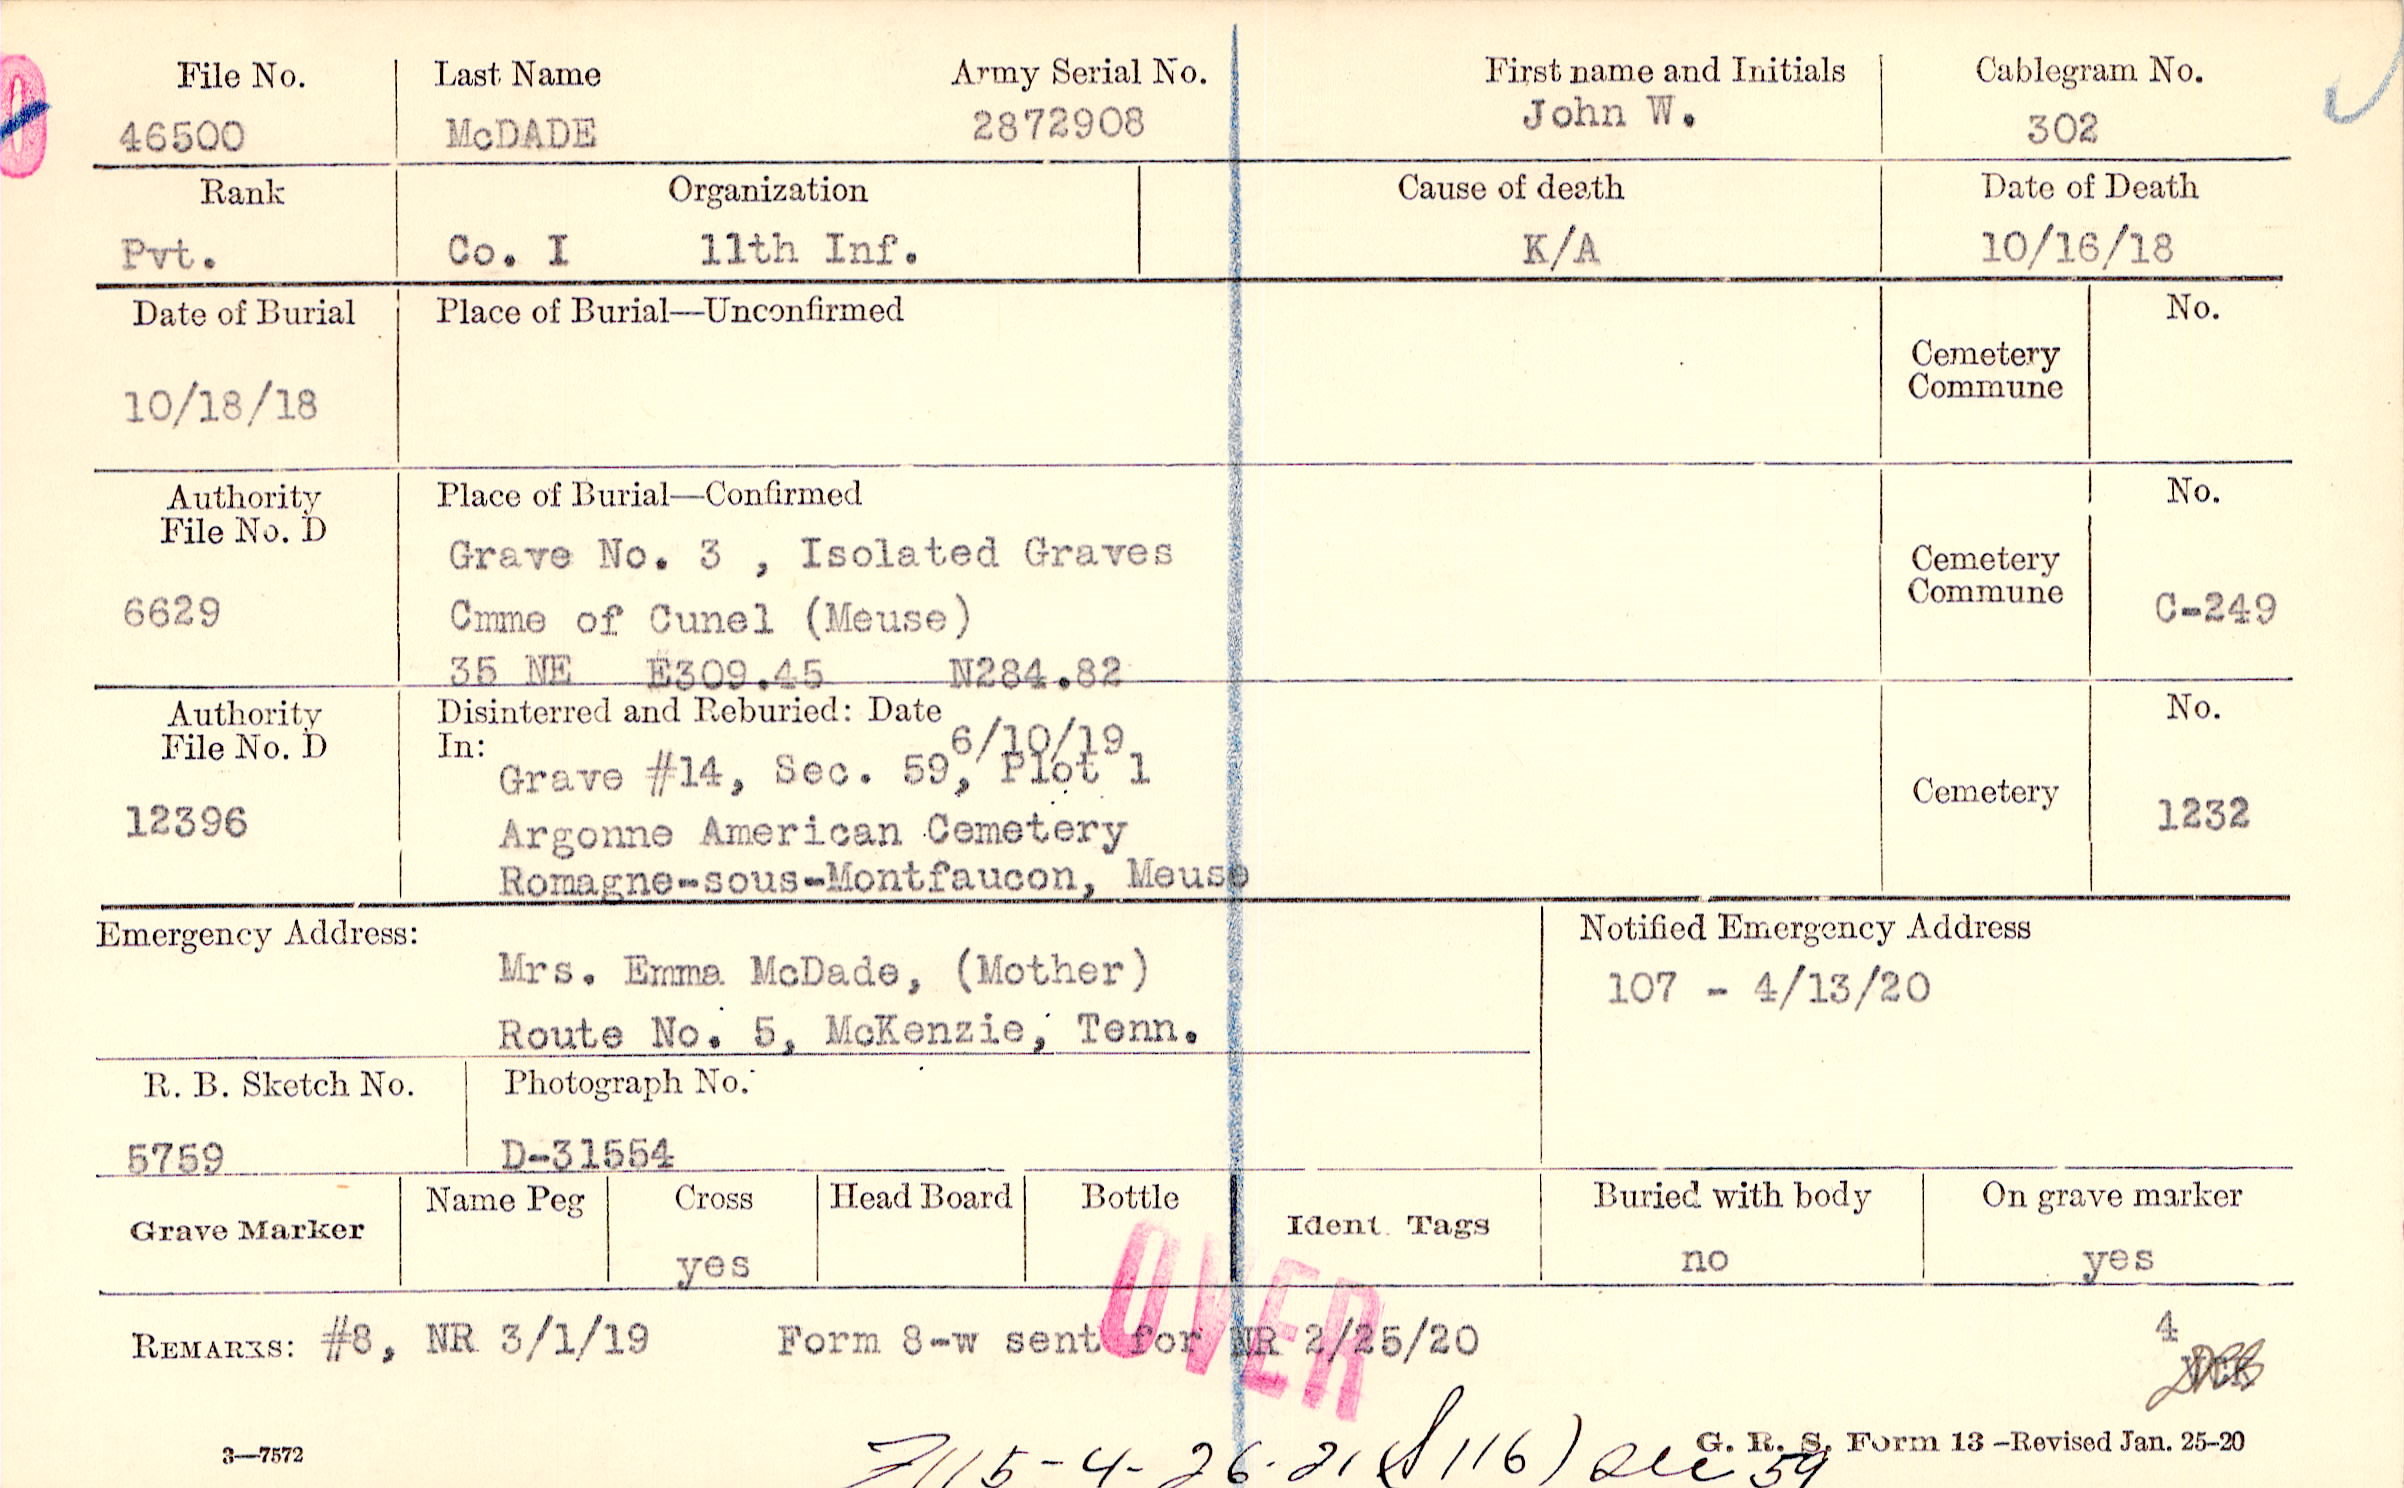 File No. Last Name Army Serial No. First name and Initials Cablegram No.
46500 McDADE 2872908 John W. 302
Rank Organization Cause of death Date of Death
Pvt. Co. I 11th Inf. K/A 10/16/18
Date of Burial Place of Burial—Unconfirmed No.
Cemetery
Commune
10/18/18
Authority Place of Burial—Confirmed No.
File No. D
Grave No. 3 , Isolated Graves
Cemetery
Commune
6629 Cmme of Cunel (Meuse) C-249
35 NE E309.45 N284.82
Authority Disinterred and Reburied: Date No.
File No. D In: 6/10/19
Grave #14, Sec. 59, Plot 1
Cemetery
12396 Argonne American Cemetery 1232
Romagne-sous-Montfaucon, Meuse
Emergency Address: Notified Emergency Address
Mrs. Emma McDade, (Mother) 107 - 4/13/20
Route No. 5, McKenzie, Tenn.
R. B. Sketch No. Photograph No.
5759 D-31554
Grave Marker Name Peg Cross Head Board Bottle Ident. Tags Buried with body On grave marker
yes no yes
OVER
REMARKS: #8, NR 3/1/19 Form 8-w sent for NR 2/25/20 4
3—7572 G. R. S. Form 13 –Revised Jan. 25-20
115-4-26-21 116) Sec 59